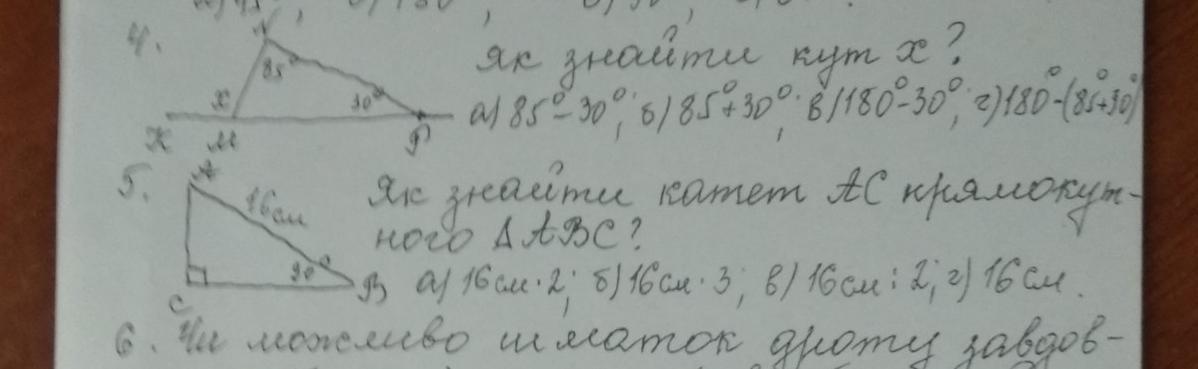 4. N 85° 30° x K M P
Як знайти кут x?
а) 85°-30°; б) 85°+30°; в) 180°-30°; г) 180°-(85°+30°)
5. A 16см 30° C B
Як знайти катет AC прямокут-
ного ΔABC?
а) 16см·2; б) 16см·3; в) 16см:2; г) 16см.
6. Чи можливо шматок дроту завдов-